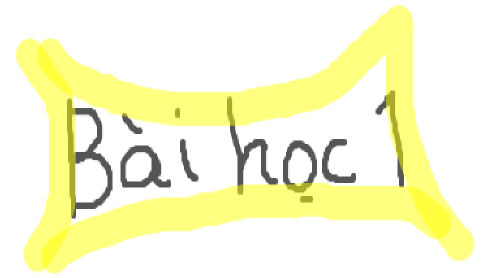 Bài học 1